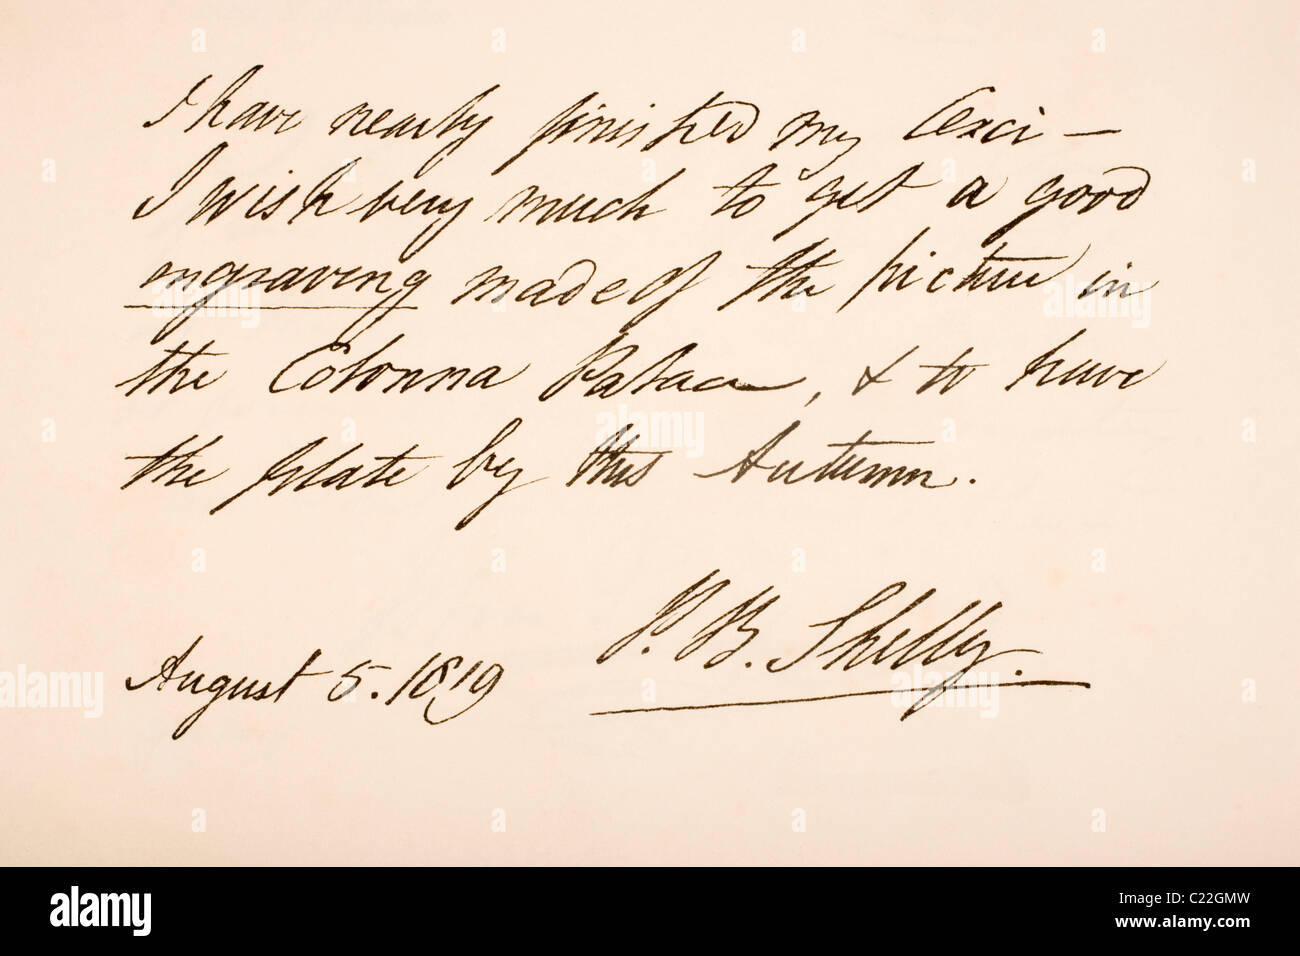 I have nearly finished my Cenci —
I wish very much to get a good
engraving made of the picture in
the Colonna Palace, & to have
the plate by this Autumn.
P. B. Shelley.
August 5. 1819
alamy
alamy
Image ID: C22GMW
www.alamy.com